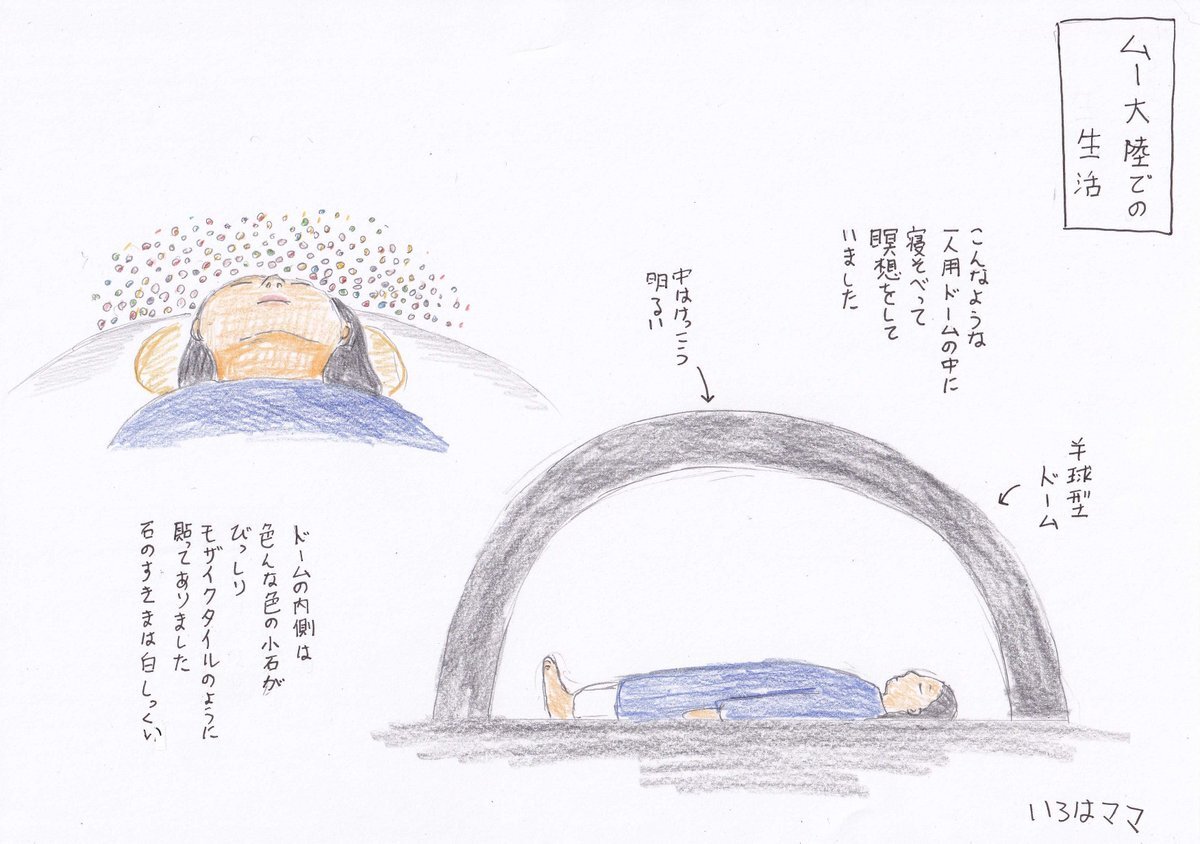 ムー大陸での
生活
こんなような
一人用ドームの中に
寝そべって
瞑想をして
いました
中はけっこう
明るい
半球型
ドーム
ドームの内側は
色んな色の小石が
びっしり
モザイクタイルのように
貼ってありました
石のすきまは白しっくい
いろはママ